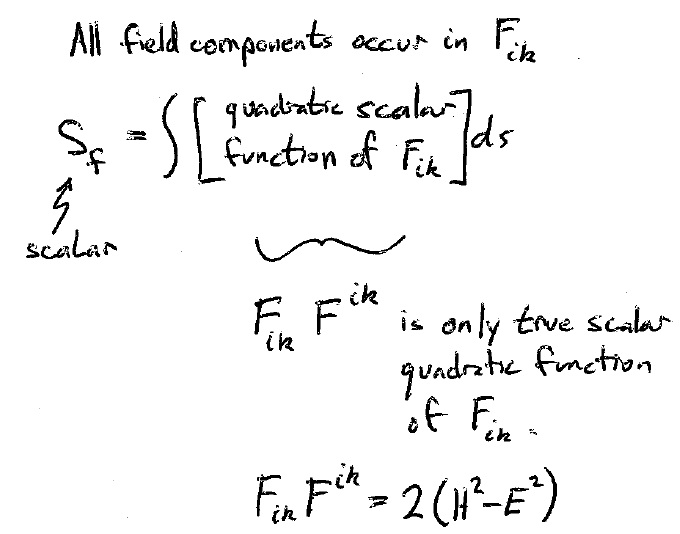 All field components occur in F_ik
S_f = ∫ [ quadratic scalar function of F_ik ] ds
scalar
F_ik F^ik is only true scalar
quadratic function
of F_ik.
F_ik F^ik = 2(H²-E²)